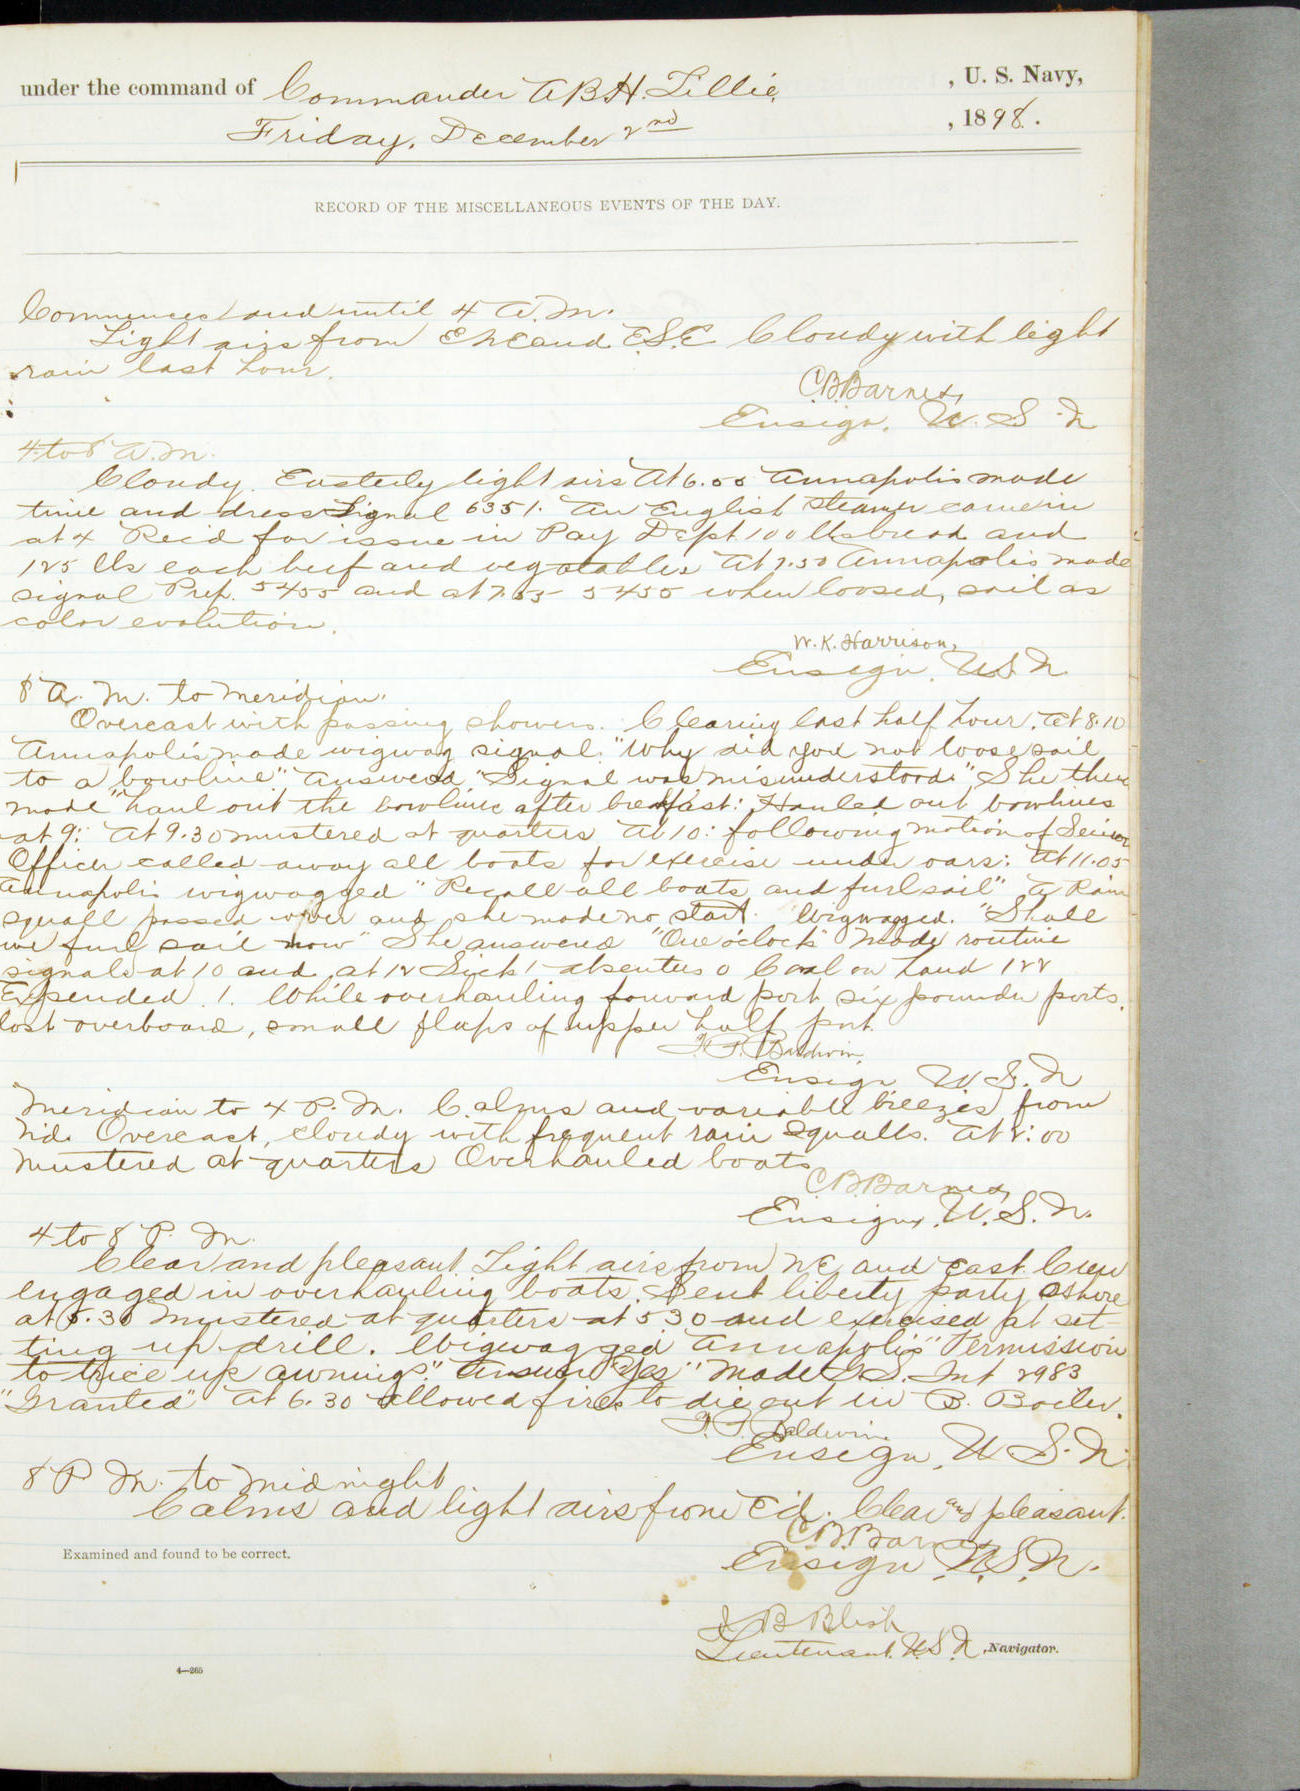 under the command of Commander A.B.H. Lillie, U. S. Navy,
Friday, December 2nd, 1898.
RECORD OF THE MISCELLANEOUS EVENTS OF THE DAY.
Commences and until 4 A.M.
Light airs from ENE and E.S.E. Cloudy with light
rain last hour.
C.B. Barnes,
Ensign, U.S.N
4 to 8 A.M.
Cloudy. Easterly light airs At 6.55 Annapolis made
time and dress Signal 6351. An English steamer came in
at 4 Rec'd for issue in Pay Dept 100 lbs bread and
125 lbs each beef and vegatables At 7.50 Annapolis made
signal Prep. 5455 and at 7.55 5455 when loosed, sail as
color evolution.
W.K. Harrison,
Ensign, U.S.N.
8 A. M. to Meridian.
Overcast with passing showers. Clearing last half hour. At 8.10
Annapolis made wigwag signal. "Why did you not loose sail
to a bowline" Answered "Signal was misunderstood." She then
made "haul out the bowlines after breakfast: Hauled out bowlines
at 9: At 9.30 mustered at quarters At 10: following motion of Senior
Officer called away all boats for exercise under oars: At 11.05
Annapolis wigwagged "Recall all boats and furl sail" A Rain
squall passed over and she made no start. Wigwagged. "Shall
we furl sail now" She answered "One o'clock" Made routine
signals at 10 and at 12 Sick 1 absentees 0 Coal on hand 122
Expended 1. While overhauling forward port six pounder ports,
lost overboard, small flaps of upper half port.
F.P. Baldwin,
Ensign U.S.N
Meridian to 4 P.M. Calms and variable breezes from
N'd. Overcast, cloudy with frequent rain squalls. At 2:00
mustered at quarters Overhauled boats
C.B. Barnes,
Ensign, U.S.N.
4 to 8 P. M.
Clear and pleasant Light airs from NE and East. Crew
engaged in overhauling boats. Sent liberty party ashore
at 5.30 Mustered at quarters at 5 30 and exercised at set-
ting up drill. Wigwagged Annapolis "Permission
to trice up awnings." Answer "Yes" Made Int 2983
"Granted" At 6.30 allowed fires to die out in B. Boiler.
F.P. Baldwin.
Ensign, U.S.N.
8 P M. to Midnight
Calms and light airs from E'd. Clear and pleasant.
C.B. Barnes
Ensign, U.S.N.
Examined and found to be correct.
J B Blish
Lieutenant U.S.N, Navigator.
4—265